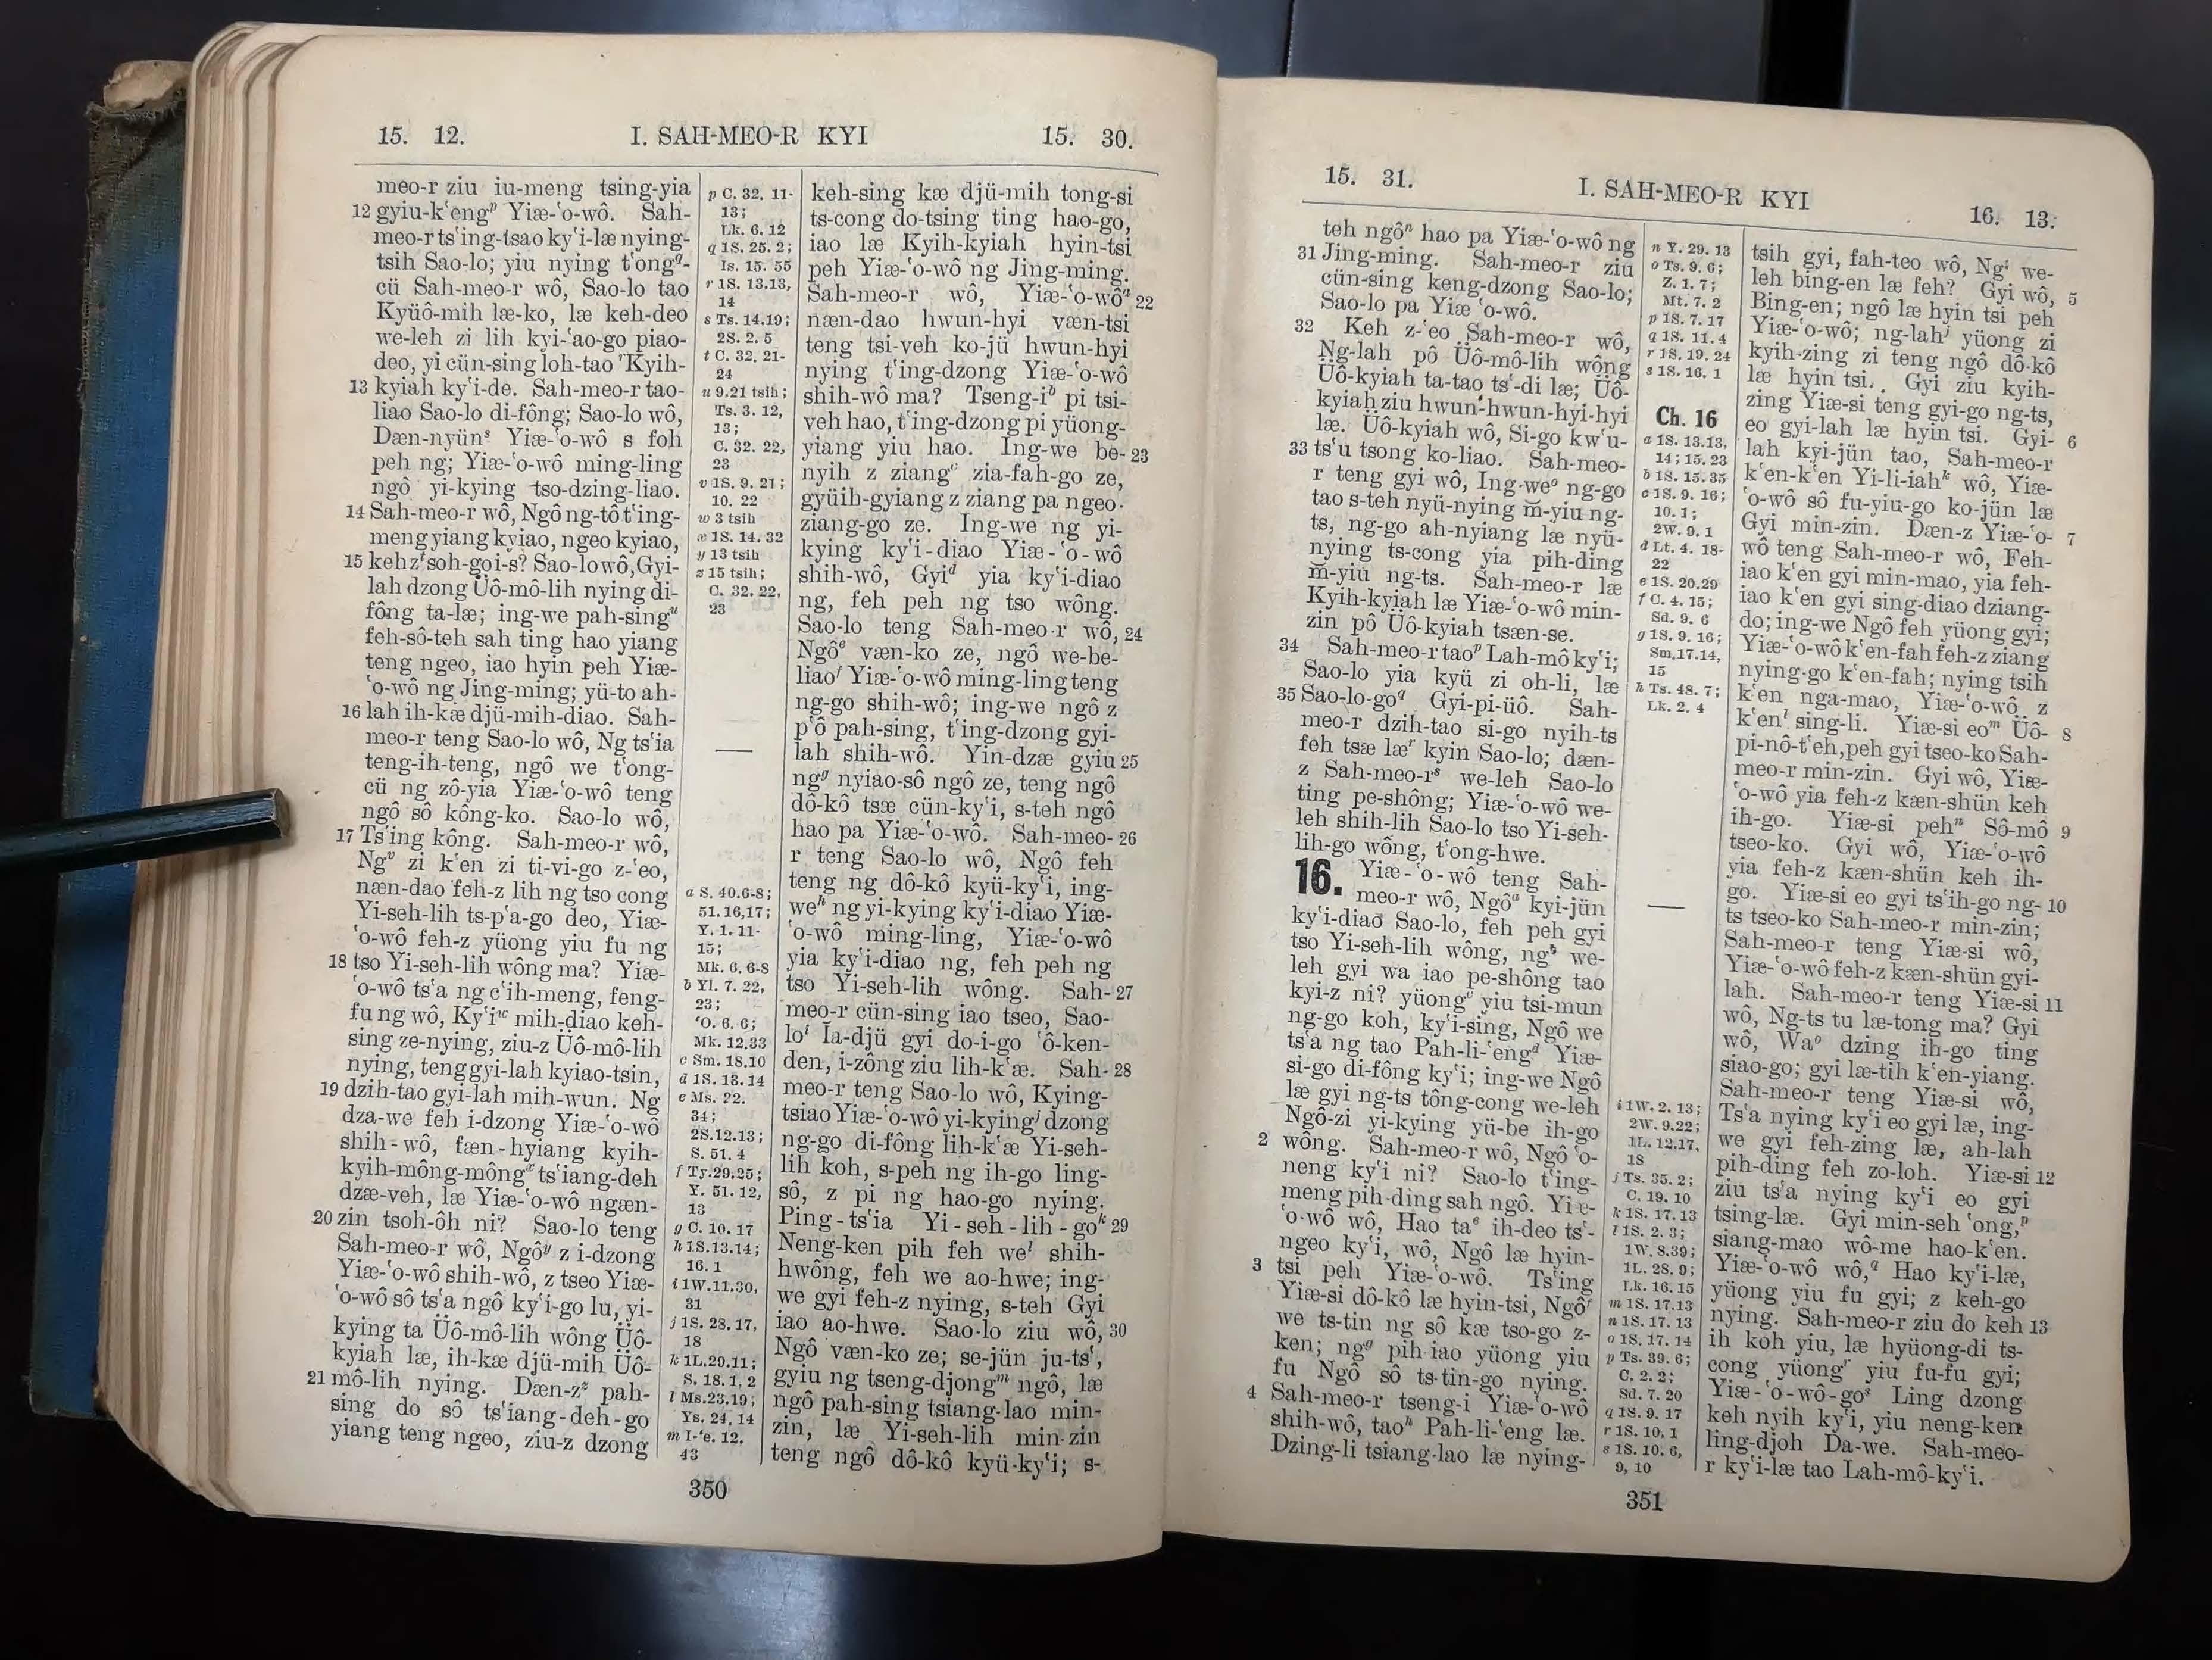 15. 12.
I. SAH-MEO-R KYI
15. 30.
meo-r ziu iu-meng tsing-yia
12 gyiu-kʻengᵖ Yiæ-ʻo-wô. Sah-
meo-r tsʻing-tsao kyʻi-læ nying-
tsih Sao-lo; yiu nying tʻong𐞥-
cü Sah-meo-r wô, Sao-lo tao
Kyüô-mih læ-ko, læ keh-deo
we-leh zi lih kyi-ʻao-go piao-
deo, yi cün-sing loh-tao ʳKyih-
13 kyiah kyʻi-de. Sah-meo-r tao-
liao Sao-lo di-fông; Sao-lo wô,
Dæn-nyünˢ Yiæ-ʻo-wô s foh
peh ng; Yiæ-ʻo-wô ming-ling
ngô yi-kying tso-dzing-liao.
14 Sah-meo-r wô, Ngô ng-tô tʻing-
meng yiang kyiao, ngeo kyiao,
15 keh zᵗ soh-go i-s? Sao-lo wô, Gyi-
lah dzong Üô-mô-lih nying di-
fông ta-læ; ing-we pah-singᵘ
feh-sô-teh sah ting hao yiang
teng ngeo, iao hyin peh Yiæ-
ʻo-wô ng Jing-ming; yü-to ah-
16 lah ih-kæ djü-mih-diao. Sah-
meo-r teng Sao-lo wô, Ng tsʻia
teng-ih-teng, ngô we tʻong-
cü ng zô-yia Yiæ-ʻo-wô teng
ngô sô kông-ko. Sao-lo wô,
17 Tsʻing kông. Sah-meo-r wô,
Ngᵛ zi kʻen zi ti-vi-go z-ʻeo,
næn-dao feh-z lih ng tso cong
Yi-seh-lih ts-pʻa-go deo, Yiæ-
ʻo-wô feh-z yüong yiu fu ng
18 tso Yi-seh-lih wông ma? Yiæ-
ʻo-wô tsʻa ng cʻih-meng, feng-
fu ng wô, Kyʻiʷ mih-diao keh-
sing ze-nying, ziu-z Üô-mô-lih
nying, teng gyi-lah kyiao-tsin,
19 dzih-tao gyi-lah mih-wun. Ng
dza-we feh i-dzong Yiæ-ʻo-wô
shih-wô, fæn-hyiang kyih-
kyih-mông-môngˣ tsʻiang-deh
dzæ-veh, læ Yiæ-ʻo-wô ngæn-
20 zin tsoh-ôh ni? Sao-lo teng
Sah-meo-r wô, Ngôʸ z i-dzong
Yiæ-ʻo-wô shih-wô, z tseo Yiæ-
ʻo-wô sô tsʻa ngô kyʻi-go lu, yi-
kying ta Üô-mô-lih wông Üô-
kyiah læ, ih-kæ djü-mih Üô-
21 mô-lih nying. Dæn-zᶻ pah-
sing do sô tsʻiang-deh-go
yiang teng ngeo, ziu-z dzong
p C. 32. 11-
13;
Lk. 6. 12
q 1S. 25. 2;
Is. 15. 55
r 1S. 13.13,
14
s Ts. 14.19;
2S. 2. 5
t C. 32. 21-
24
u 9,21 tsih;
Ts. 3. 12,
13;
C. 32. 22,
23
v 1S. 9. 21;
10. 22
w 3 tsih
x 1S. 14. 32
y 13 tsih
z 15 tsih;
C. 32. 22,
23
a S. 40.6-8;
51.16,17;
Y. 1. 11-
15;
Mk. 6. 6-8
b Yl. 7. 22,
23;
ʻO. 6. 6;
Mk. 12.33
c Sm. 18.10
d 1S. 13. 14
e Ms. 22.
34;
2S.12.13;
S. 51. 4
f Ty.29.25;
Y. 51. 12,
13
g C. 10. 17
h 1S.13.14;
16. 1
i 1W.11.30,
31
j 1S. 28. 17,
18
k 1L.29.11;
S. 18. 1, 2
l Ms.23.19;
Ys. 24. 14
m I-ʻe. 12.
43
keh-sing kæ djü-mih tong-si
ts-cong do-tsing ting hao-go,
iao læ Kyih-kyiah hyin-tsi
peh Yiæ-ʻo-wô ng Jing-ming.
Sah-meo-r wô, Yiæ-ʻo-wôᵃ 22
næn-dao hwun-hyi væn-tsi
teng tsi-veh ko-jü hwun-hyi
nying tʻing-dzong Yiæ-ʻo-wô
shih-wô ma? Tseng-iᵇ pi tsi-
veh hao, tʻing-dzong pi yüong-
yiang yiu hao. Ing-we be- 23
nyih z ziangᶜ zia-fah-go ze,
gyüih-gyiang z ziang pa ngeo-
ziang-go ze. Ing-we ng yi-
kying kyʻi-diao Yiæ-ʻo-wô
shih-wô, Gyiᵈ yia kyʻi-diao
ng, feh peh ng tso wông.
Sao-lo teng Sah-meo-r wô, 24
Ngôᵉ væn-ko ze, ngô we-be-
liaoᶠ Yiæ-ʻo-wô ming-ling teng
ng-go shih-wô; ing-we ngô z
pʻô pah-sing, tʻing-dzong gyi-
lah shih-wô. Yin-dzæ gyiu 25
ngᵍ nyiao-sô ngô ze, teng ngô
dô-kô tsæ cün-kyʻi, s-teh ngô
hao pa Yiæ-ʻo-wô. Sah-meo- 26
r teng Sao-lo wô, Ngô feh
teng ng dô-kô kyü-kyʻi, ing-
weʰ ng yi-kying kyʻi-diao Yiæ-
ʻo-wô ming-ling, Yiæ-ʻo-wô
yia kyʻi-diao ng, feh peh ng
tso Yi-seh-lih wông. Sah- 27
meo-r cün-sing iao tseo, Sao-
loⁱ la-djü gyi do-i-go ʻô-ken-
den, i-zông ziu lih-kʻæ. Sah- 28
meo-r teng Sao-lo wô, Kying-
tsiao Yiæ-ʻo-wô yi-kyingʲ dzong
ng-go di-fông lih-kʻæ Yi-seh-
lih koh, s-peh ng ih-go ling-
sô, z pi ng hao-go nying.
Ping-tsʻia Yi-seh-lih-goᵏ 29
Neng-ken pih feh weˡ shih-
hwông, feh we ao-hwe; ing-
we gyi feh-z nying, s-teh Gyi
iao ao-hwe. Sao-lo ziu wô, 30
Ngô væn-ko ze; se-jün ju-tsʻ,
gyiu ng tseng-djongᵐ ngô, læ
ngô pah-sing tsiang-lao min-
zin, læ Yi-seh-lih min-zin
teng ngô dô-kô kyü-kyʻi; s-
350
15. 31.
I. SAH-MEO-R KYI
16. 13.
teh ngôⁿ hao pa Yiæ-ʻo-wô ng
31 Jing-ming. Sah-meo-r ziu
cün-sing keng-dzong Sao-lo;
Sao-lo pa Yiæ ʻo-wô.
32 Keh z-ʻeo Sah-meo-r wô,
Ng-lah pô Üô-mô-lih wông
Üô-kyiah ta-tao tsʻ-di læ; Üô-
kyiah ziu hwun-hwun-hyi-hyi
læ. Üô-kyiah wô, Si-go kwʻu-
33 tsʻu tsong ko-liao. Sah-meo-
r teng gyi wô, Ing-weᵒ ng-go
tao s-teh nyü-nying m̆-yiu ng-
ts, ng-go ah-nyiang læ nyü-
nying ts-cong yia pih-ding
m̆-yiu ng-ts. Sah-meo-r læ
Kyih-kyiah læ Yiæ-ʻo-wô min-
zin pô Üô-kyiah tsæn-se.
34 Sah-meo-r taoᵖ Lah-mô kyʻi;
Sao-lo yia kyü zi oh-li, læ
35 Sao-lo-go𐞥 Gyi-pi-üô. Sah-
meo-r dzih-tao si-go nyih-ts
feh tsæ læʳ kyin Sao-lo; dæn-
z Sah-meo-rˢ we-leh Sao-lo
ting pe-shông; Yiæ-ʻo-wô we-
leh shih-lih Sao-lo tso Yi-seh-
lih-go wông, tʻong-hwe.
16. Yiæ-ʻo-wô teng Sah-
meo-r wô, Ngôᵃ kyi-jün
kyʻi-diao Sao-lo, feh peh gyi
tso Yi-seh-lih wông, ngᵇ we-
leh gyi wa iao pe-shông tao
kyi-z ni? yüongᶜ yiu tsi-mun
ng-go koh, kyʻi-sing, Ngô we
tsʻa ng tao Pah-li-ʻengᵈ Yiæ-
si-go di-fông kyʻi; ing-we Ngô
læ gyi ng-ts tông-cong we-leh
Ngô-zi yi-kying yü-be ih-go
2 wông. Sah-meo-r wô, Ngô ʻo-
neng kyʻi ni? Sao-lo tʻing-
meng pih-ding sah ngô. Yiæ-
ʻo-wô wô, Hao taᵉ ih-deo tsʻ-
ngeo kyʻi, wô, Ngô læ hyin-
3 tsi peh Yiæ-ʻo-wô. Tsʻing
Yiæ-si dô-kô læ hyin-tsi, Ngôᶠ
we ts-tin ng sô kæ tso-go z-
ken; ngᵍ pih-iao yüong yiu
fu Ngô sô ts-tin-go nying.
4 Sah-meo-r tseng-i Yiæ-ʻo-wô
shih-wô, taoʰ Pah-li-ʻeng læ.
Dzing-li tsiang-lao læ nying-
n Y. 29. 13
o Ts. 9. 6;
Z. 1. 7;
Mt. 7. 2
p 1S. 7. 17
q 1S. 11. 4
r 1S. 19. 24
s 1S. 16. 1
Ch. 16
a 1S. 13.13,
14; 15. 23
b 1S. 15. 35
c 1S. 9. 16;
10. 1;
2W. 9. 1
d Lt. 4. 18-
22
e 1S. 20.29
f C. 4. 15;
Sd. 9. 6
g 1S. 9. 16;
Sm.17.14,
15
h Ts. 48. 7;
Lk. 2. 4
i 1W. 2. 13;
2W. 9.22;
1L. 12.17,
18
j Ts. 35. 2;
C. 19. 10
k 1S. 17. 13
l 1S. 2. 3;
1W. 8.39;
1L. 28. 9;
Lk. 16. 15
m 1S. 17.13
n 1S. 17. 13
o 1S. 17. 14
p Ts. 39. 6;
C. 2. 2;
Sd. 7. 20
q 1S. 9. 17
r 1S. 10. 1
s 1S. 10. 6,
9, 10
tsih gyi, fah-teo wô, Ngⁱ we-
leh bing-en læ feh? Gyi wô, 5
Bing-en; ngô læ hyin tsi peh
Yiæ-ʻo-wô; ng-lahʲ yüong zi
kyih-zing zi teng ngô dô-kô
læ hyin tsi. Gyi ziu kyih-
zing Yiæ-si teng gyi-go ng-ts,
eo gyi-lah læ hyin tsi. Gyi- 6
lah kyi-jün tao, Sah-meo-r
kʻen-kʻen Yi-li-iahᵏ wô, Yiæ-
ʻo-wô sô fu-yiu-go ko-jün læ
Gyi min-zin. Dæn-z Yiæ-ʻo- 7
wô teng Sah-meo-r wô, Feh-
iao kʻen gyi min-mao, yia feh-
iao kʻen gyi sing-diao dziang-
do; ing-we Ngô feh yüong gyi;
Yiæ-ʻo-wô kʻen-fah feh-z ziang
nying-go kʻen-fah; nying tsih
kʻen nga-mao, Yiæ-ʻo-wô z
kʻenˡ sing-li. Yiæ-si eoᵐ Üô- 8
pi-nô-tʻeh, peh gyi tseo-ko Sah-
meo-r min-zin. Gyi wô, Yiæ-
ʻo-wô yia feh-z kæn-shün keh
ih-go. Yiæ-si pehⁿ Sô-mô 9
tseo-ko. Gyi wô, Yiæ-ʻo-wô
yia feh-z kæn-shün keh ih-
go. Yiæ-si eo gyi tsʻih-go ng- 10
ts tseo-ko Sah-meo-r min-zin;
Sah-meo-r teng Yiæ-si wô,
Yiæ-ʻo-wô feh-z kæn-shün gyi-
lah. Sah-meo-r teng Yiæ-si 11
wô, Ng-ts tu læ-tong ma? Gyi
wô, Waᵒ dzing ih-go ting
siao-go; gyi læ-tih kʻen-yiang.
Sah-meo-r teng Yiæ-si wô,
Tsʻa nying kyʻi eo gyi læ, ing-
we gyi feh-zing læ, ah-lah
pih-ding feh zo-loh. Yiæ-si 12
ziu tsʻa nying kyʻi eo gyi
tsing-læ. Gyi min-seh ʻong,ᵖ
siang-mao wô-me hao-kʻen.
Yiæ-ʻo-wô wô,𐞥 Hao kyʻi-læ,
yüong yiu fu gyi; z keh-go
nying. Sah-meo-r ziu do keh 13
ih koh yiu, læ hyüong-di ts-
cong yüongʳ yiu fu-fu gyi;
Yiæ-ʻo-wô-goˢ Ling dzong
keh nyih kyʻi, yiu neng-ken
ling-djoh Da-we. Sah-meo-
r kyʻi-læ tao Lah-mô-kyʻi.
351